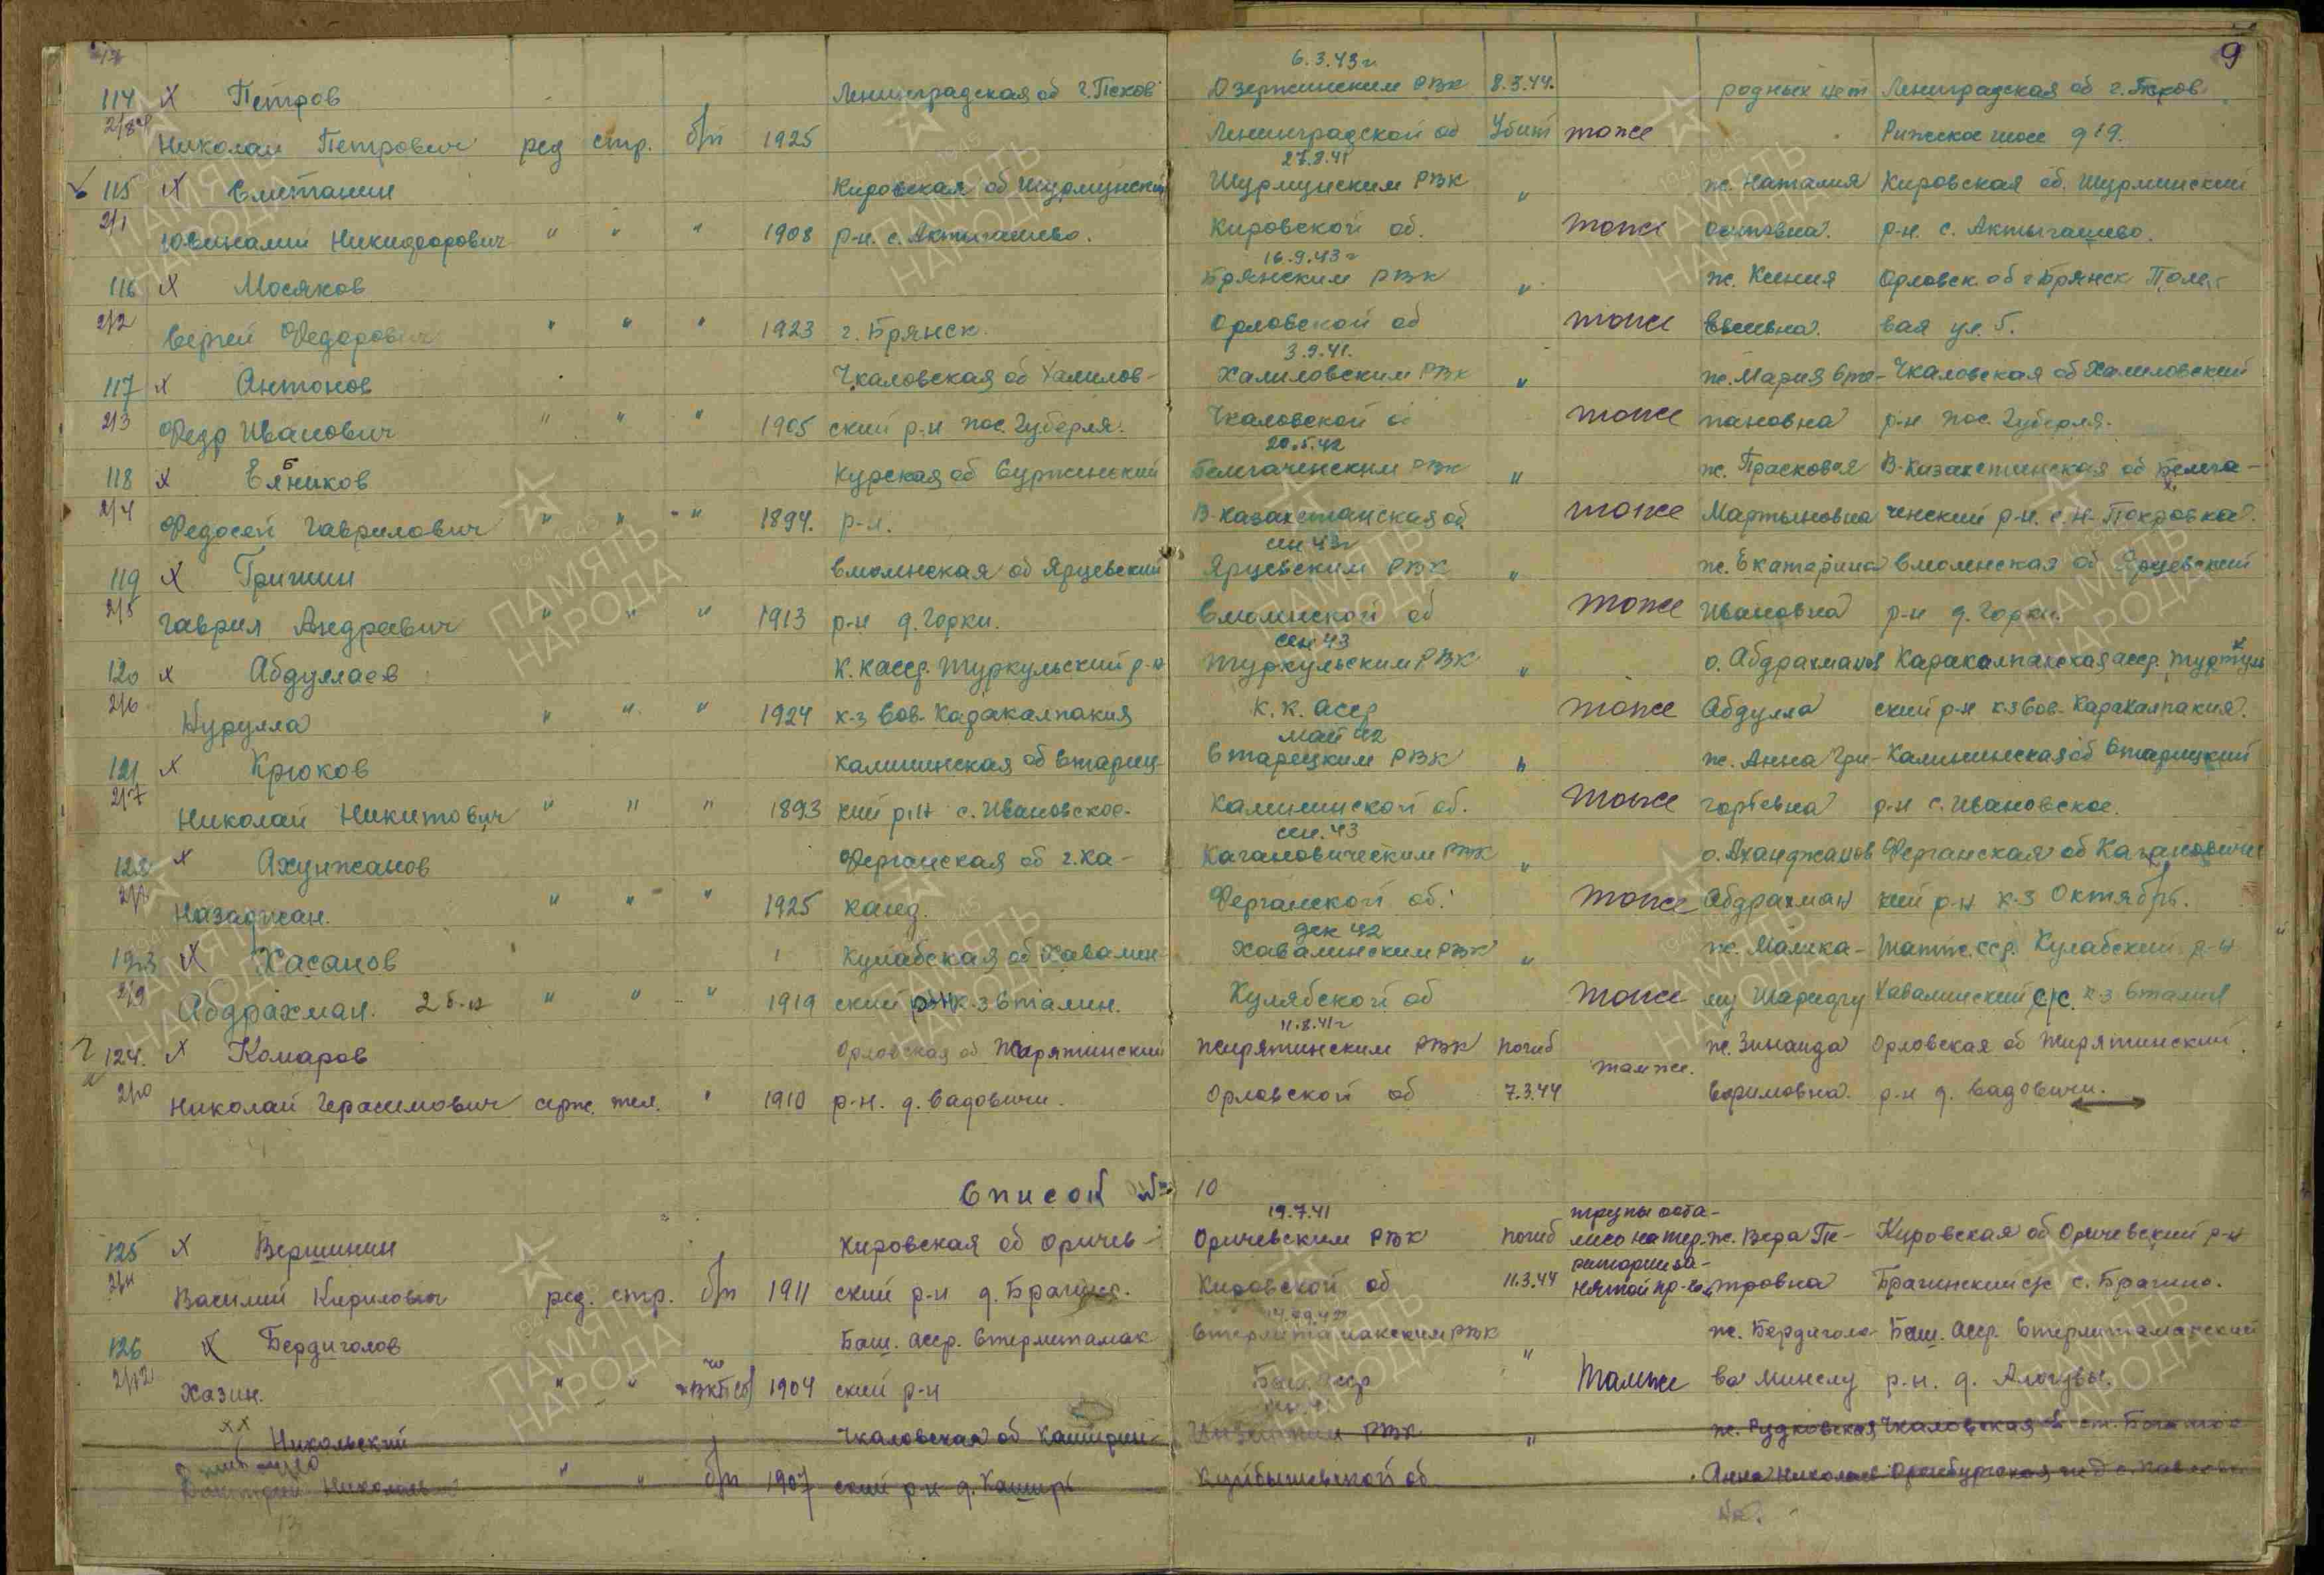 9
6.3.43г.
114 х Петров Ленинградская об г. Псков Дзержинским РВК 8.3.44. родных нет Ленинградская об г. Псков
Николай Петрович ряд стр. б/п 1925 Ленинградской об Убит тоже Рижское шосе д 19.
27.8.41
115 х Сметанин Кировская об Шурминский Шурминским РВК " ж. Наталия Кировская об. Шурминский
2/1 Ювиналий Никифорович " " " 1908 р-н. с. Актыгашево. Кировской об. тоже р-н. с. Актыгашево.
16.9.43г
116 х Мосяков Брянским РВК " ж. Ксения Орловск. об г Брянск Поле-
2/2 Сергей Федорович " " " 1923 г. Брянск. Орловской об тоже вая ул. 5.
3.9.41.
117 х Антонов Чкаловская об Халилов- Халиловским РВК " ж. Мария Сте- Чкаловская об Халиловский
2/3 Федр Иванович " " " 1905 ский р-н пос. Губерля. Чкаловской о тоже пановна р-н пос. Губерля.
20.5.42
118 х Курская об Суржинский Белгаченским РВК " ж. Прасковья В-Казахстинская об Белга-
2/4 Федосей Гаврилович " " " 1894. р-н. В-Казахстанская об. тоже Мартыновна ченский р-н. с. Н-Покровка.
сен 43г
119 х Гришин Смоленская об Ярцевский Ярцевским РВК " ж. Екатерина Смоленская об Ярцевский
2/5 Гаврил Андреевич " " " 1913 р-н д. Горки. Смоленской об тоже Ивановна р-н д. Горки.
сен 43
120 х Абдуллаев К. Касср. Туркульский р-н Туркульским РВК " о. Абдрахманов Каракалпакская асср. Турткуль
2/6 Нурулла " " " 1924 к-з Сов-Кадакалпакия К. К. Асср тоже Абдулла ский р-н к-з Сов-Каракалпакия.
май 42
121 х Крюков Калининская об Стариц- Старецким РВК " ж. Анна Гри- Калининская об Старицкий
2/7 Николай Никитович " " " 1893 кий р-н с. Ивановское. Калининской об. тоже горьевна р-н с. Ивановское.
сен. 43
122 х Ахунжанов Ферганская об г. Ка- Кагановическим РВК " о. Аханджанов Ферганская об Кагановичес
2/8 Назаджан. " " " 1925 канд. Ферганской об. тоже Абдрахман кий р-н к-з Октябрь.
дек 42
123 х Хасанов Кулябская об Хавалин- Хавалинским РВК " ж. Малика- Тадж. сср. Кулабский р-н
2/9 Абдрахман. 2 б-н " " " 1919 ский р-н к-з Сталин. Кулябской об тоже Хавалинский с/с. к-з Сталин
11.8.41г
124. х Комаров Орловская об Жирятинский Жирятинским РВК погиб там же. ж. Зинаида Орловская об Жирятинский
2/10 Николай Герасимович серж. тел. " 1910 р-н. д. Садовичи. Орловской об 7.3.44 Ефимовна. р-н д. Садовичи.
Список № 10
19.7.41 трупы оста-
125 х Вершинин Кировская об Оричев- Оричевским РВК погиб лись на тер- ж. Вера Пе- Кировская об Оричевский р-н
ритории за-
2/11 Василий Кирилович ряд. стр. б/п 1911 ский р-н д. Брагино. Кировской об 11.3.44 нятой пр-ом тровна Брагинский с/с с. Брагино.
126 х Бердиголов Баш. асср. Стерлитамак Стерлитамакским РВК " ж. Бердиголо- Баш. асср. Стерлитамакский
2/12 Хазин. " " ВКП(б) 1904 ский р-н Баш. асср Там же ва Минслу р-н. д.
хх Никольский Чкаловская об Каширин- РВК " ж. Рудковская Чкаловская об ст.
Николаев " " б/п 1907 ский р-н д. Кашира Куйбышевской об Анна Николаев Оренбургская ж д с.